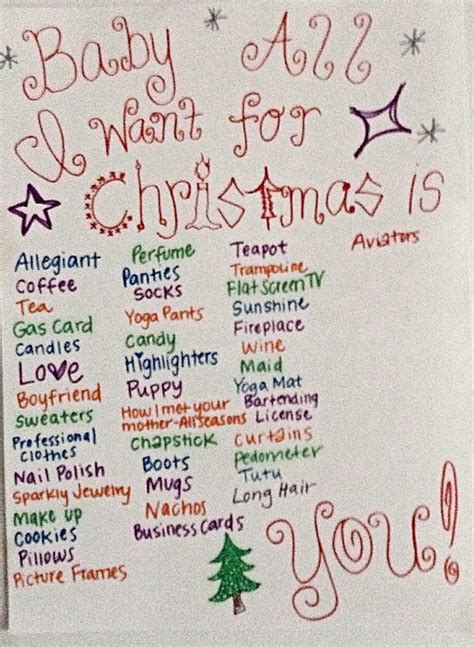 Baby All
I Want for
Christmas is
Allegiant
Coffee
Tea
Gas Card
Candles
Love
Boyfriend
Sweaters
Professional
Clothes
Nail Polish
Sparkly Jewelry
Make up
Cookies
Pillows
Picture Frames
Perfume
Panties
Socks
Yoga Pants
Candy
Highlighters
Puppy
How I met your
mother-All Seasons
Chapstick
Boots
Mugs
Nachos
Business Cards
Teapot
Trampoline
Flat Screen TV
Sunshine
Fireplace
Wine
Maid
Yoga Mat
Bartending
License
Curtains
Pedometer
Tutu
Long Hair
Aviators
YOU!